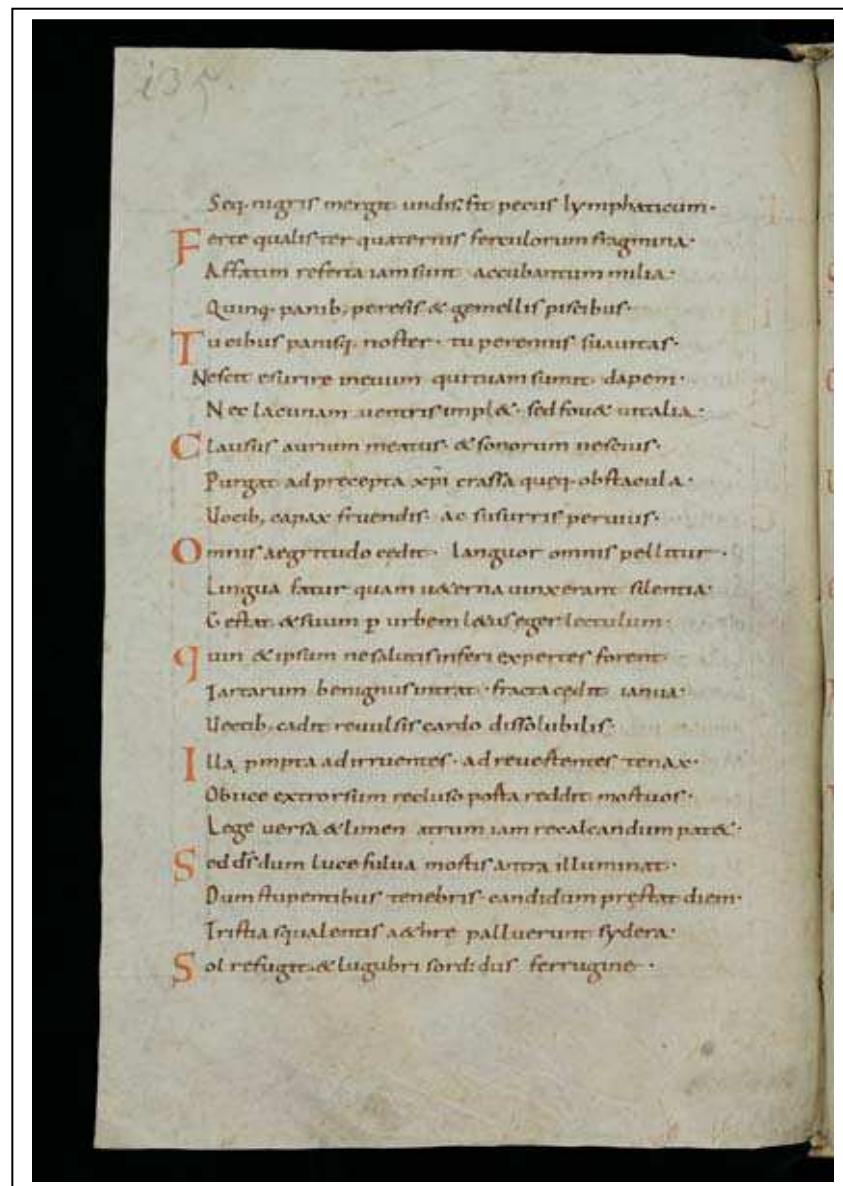 i35.
Seq. nigris mergit undis. fit pecus lymphaticum·
Ferte qualis ter quaternis ferculorum fragmina·
Affatim referta iam sunt accubantum milia·
Quinq· panib; peresis & gemellis piscibus·
Tu cibus panisq. noster· tu perennis suauitas·
Nescit esurire in euum qui tuam sumit dapem·
Nec lacunam uentris impl&· sed fou& uitalia·
Clausus aurium meatus· & sonorum nescius·
Purgat ad precepta xpi crassa queq· obstacula·
Uocib; capax fruendis· ac susurris peruius·
Omnis aegritudo cedit· languor omnis pellitur·
Lingua fatur quam u&erna uinxerant silentia·
Gestat & suum p urbem l&us eger lectulum·
quin & ipsum ne salutis inferi expertes forent
Tartarum benignus intrat· fracta cedit ianua·
Uectib; cadit reuulsis cardo dissolubilis·
Illa pmpta ad irruentes· ad reuertentes tenax·
Obice extrorsum recluso porta reddit mortuos·
Lege uersa & limen atrum iam recalcandum pat&·
Sed ds dum luce fulua mortis antra illuminat·
Dum stupentibus tenebris candidum pręstat diem·
Tristia squalentis a&hre palluerunt sydera·
Sol refugit· & lugubri sordidus ferrugine·